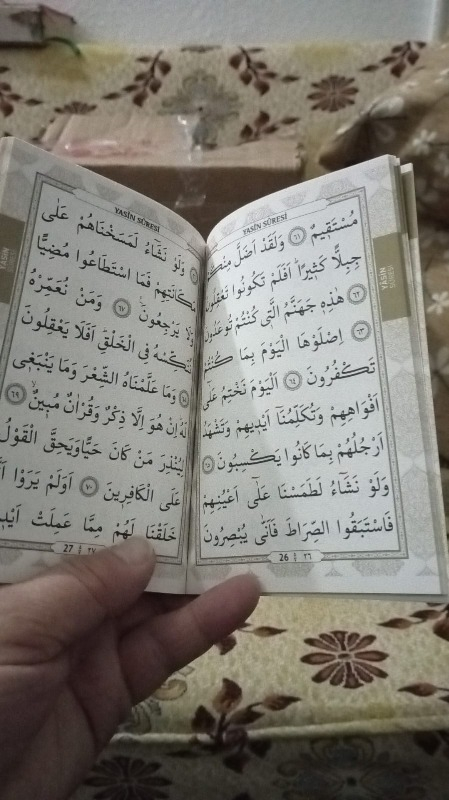 YASİN SÛRESİ
مُسْتَقِيمٌ ﴿٦١﴾ وَلَقَدْ اَضَلَّ مِنْكُمْ
جِبِلًّا كَثِيرًا اَفَلَمْ تَكُونُوا تَعْقِلُونَ
﴿٦٢﴾ هٰذِهِ جَهَنَّمُ الَّتِى كُنْتُمْ تُوعَدُونَ
﴿٦٣﴾ اِصْلَوْهَا الْيَوْمَ بِمَا كُنْتُمْ
تَكْفُرُونَ ﴿٦٤﴾ اَلْيَوْمَ نَخْتِمُ عَلٰى
اَفْوَاهِهِمْ وَتُكَلِّمُنَا اَيْدِيهِمْ وَتَشْهَدُ
اَرْجُلُهُمْ بِمَا كَانُوا يَكْسِبُونَ ﴿٦٥﴾
وَلَوْ نَشَاءُ لَطَمَسْنَا عَلٰى اَعْيُنِهِمْ
فَاسْتَبَقُوا الصِّرَاطَ فَاَنّٰى يُبْصِرُونَ
26 ٢٦
YASİN SÛRESİ
YASİN SÛRESİ
وَلَوْ نَشَاءُ لَمَسَخْنَاهُمْ عَلٰى
مَكَانَتِهِمْ فَمَا اسْتَطَاعُوا مُضِيًّا
وَلَا يَرْجِعُونَ ﴿٦٧﴾ وَمَنْ نُعَمِّرْهُ
نُنَكِّسْهُ فِى الْخَلْقِ اَفَلَا يَعْقِلُونَ
﴿٦٨﴾ وَمَا عَلَّمْنَاهُ الشِّعْرَ وَمَا يَنْبَغِى
لَهُ اِنْ هُوَ اِلَّا ذِكْرٌ وَقُرْاٰنٌ مُبِينٌ ﴿٦٩﴾
لِيُنْذِرَ مَنْ كَانَ حَيًّا وَيَحِقَّ الْقَوْلُ
عَلَى الْكَافِرِينَ ﴿٧٠﴾ اَوَلَمْ يَرَوْا
خَلَقْنَا لَهُمْ مِمَّا عَمِلَتْ
27 ٢٧
YASİN